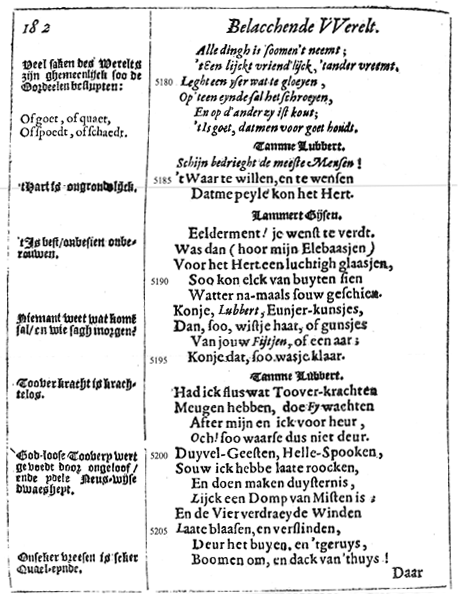 182
Belacchende VVerelt.
Veel saken des Werelts
zijn ghemeenlijck soo de
Oordeelen besluyten:
Of goet, of quaet,
Of spoedt, of schaedt.
't Hart is ongrondlijck.
't Is best/onbesien onbe-
rouwen.
Niemant weet wat komt
sal/en wie sagh morgen?
Toover kracht is krach-
teloos.
God-loose Toovery wert
gevoedt door ongeloof/
ende ydele Neus-wijse
dwaesheyt.
Onseker vreesen is seker
Quael-eynde.
Alle dingh is soomen't neemt;
't Een lijckt vriend'lijck, 'tander vreemt.
5180 Leght een yser wat te gloeyen,
Op 't een eynde sal het schroeyen,
En op d'ander zy ist kout;
't Is goet, datmen voor goet houdt.
Tamme Lubbert.
Schijn bedrieght de meeste Mensen!
5185 't Waar te willen, en te wensen
Datme peylé kon het Hert.
Lammert Gijsen.
Eelderment! je wenst te verdt.
Was dan (hoor mijn Elebaasjen)
Voor het Hert een luchtigh glaasjen,
5190 Soo kon elck van buyten sien
Watter na-maals souw geschien.
Konje, Lubbert, Eunjer-kunsjes,
Dan, soo, wistje haar, of gunsjes
Van jouw Fijtjen, of een aar;
5195 Konje dat, soo wasje klaar.
Tamme Lubbert.
Had ick flus wat Toover-krachten
Meugen hebben, doe Fy wachten
After mijn en ick voor heur,
Och! soo waarse dus niet deur.
5200 Duyvel-Geesten, Helle-Spooken,
Souw ick hebbe laate roocken,
En doen maken duysternis,
Lijck een Domp van Misten is;
En de Vier verdraeyde Winden
5205 Laate blaasen, en verslinden,
Deur het buyen, en 't geruys,
Boomen om, en dack van 't huys!
Daar